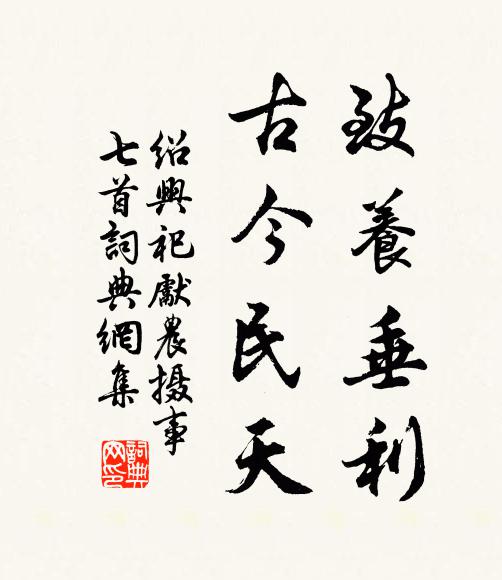 致養垂利
古今民天
紹興祀獻農摄事
七首詞典網集
詞典
网印